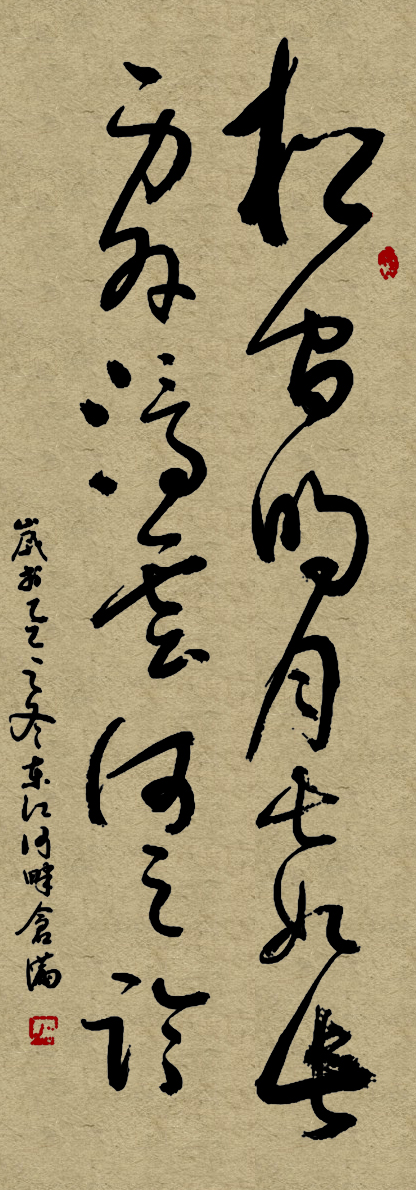 松間明月長如此
身外浮雲何足論
歲於乙巳之冬東江河畔倉滿